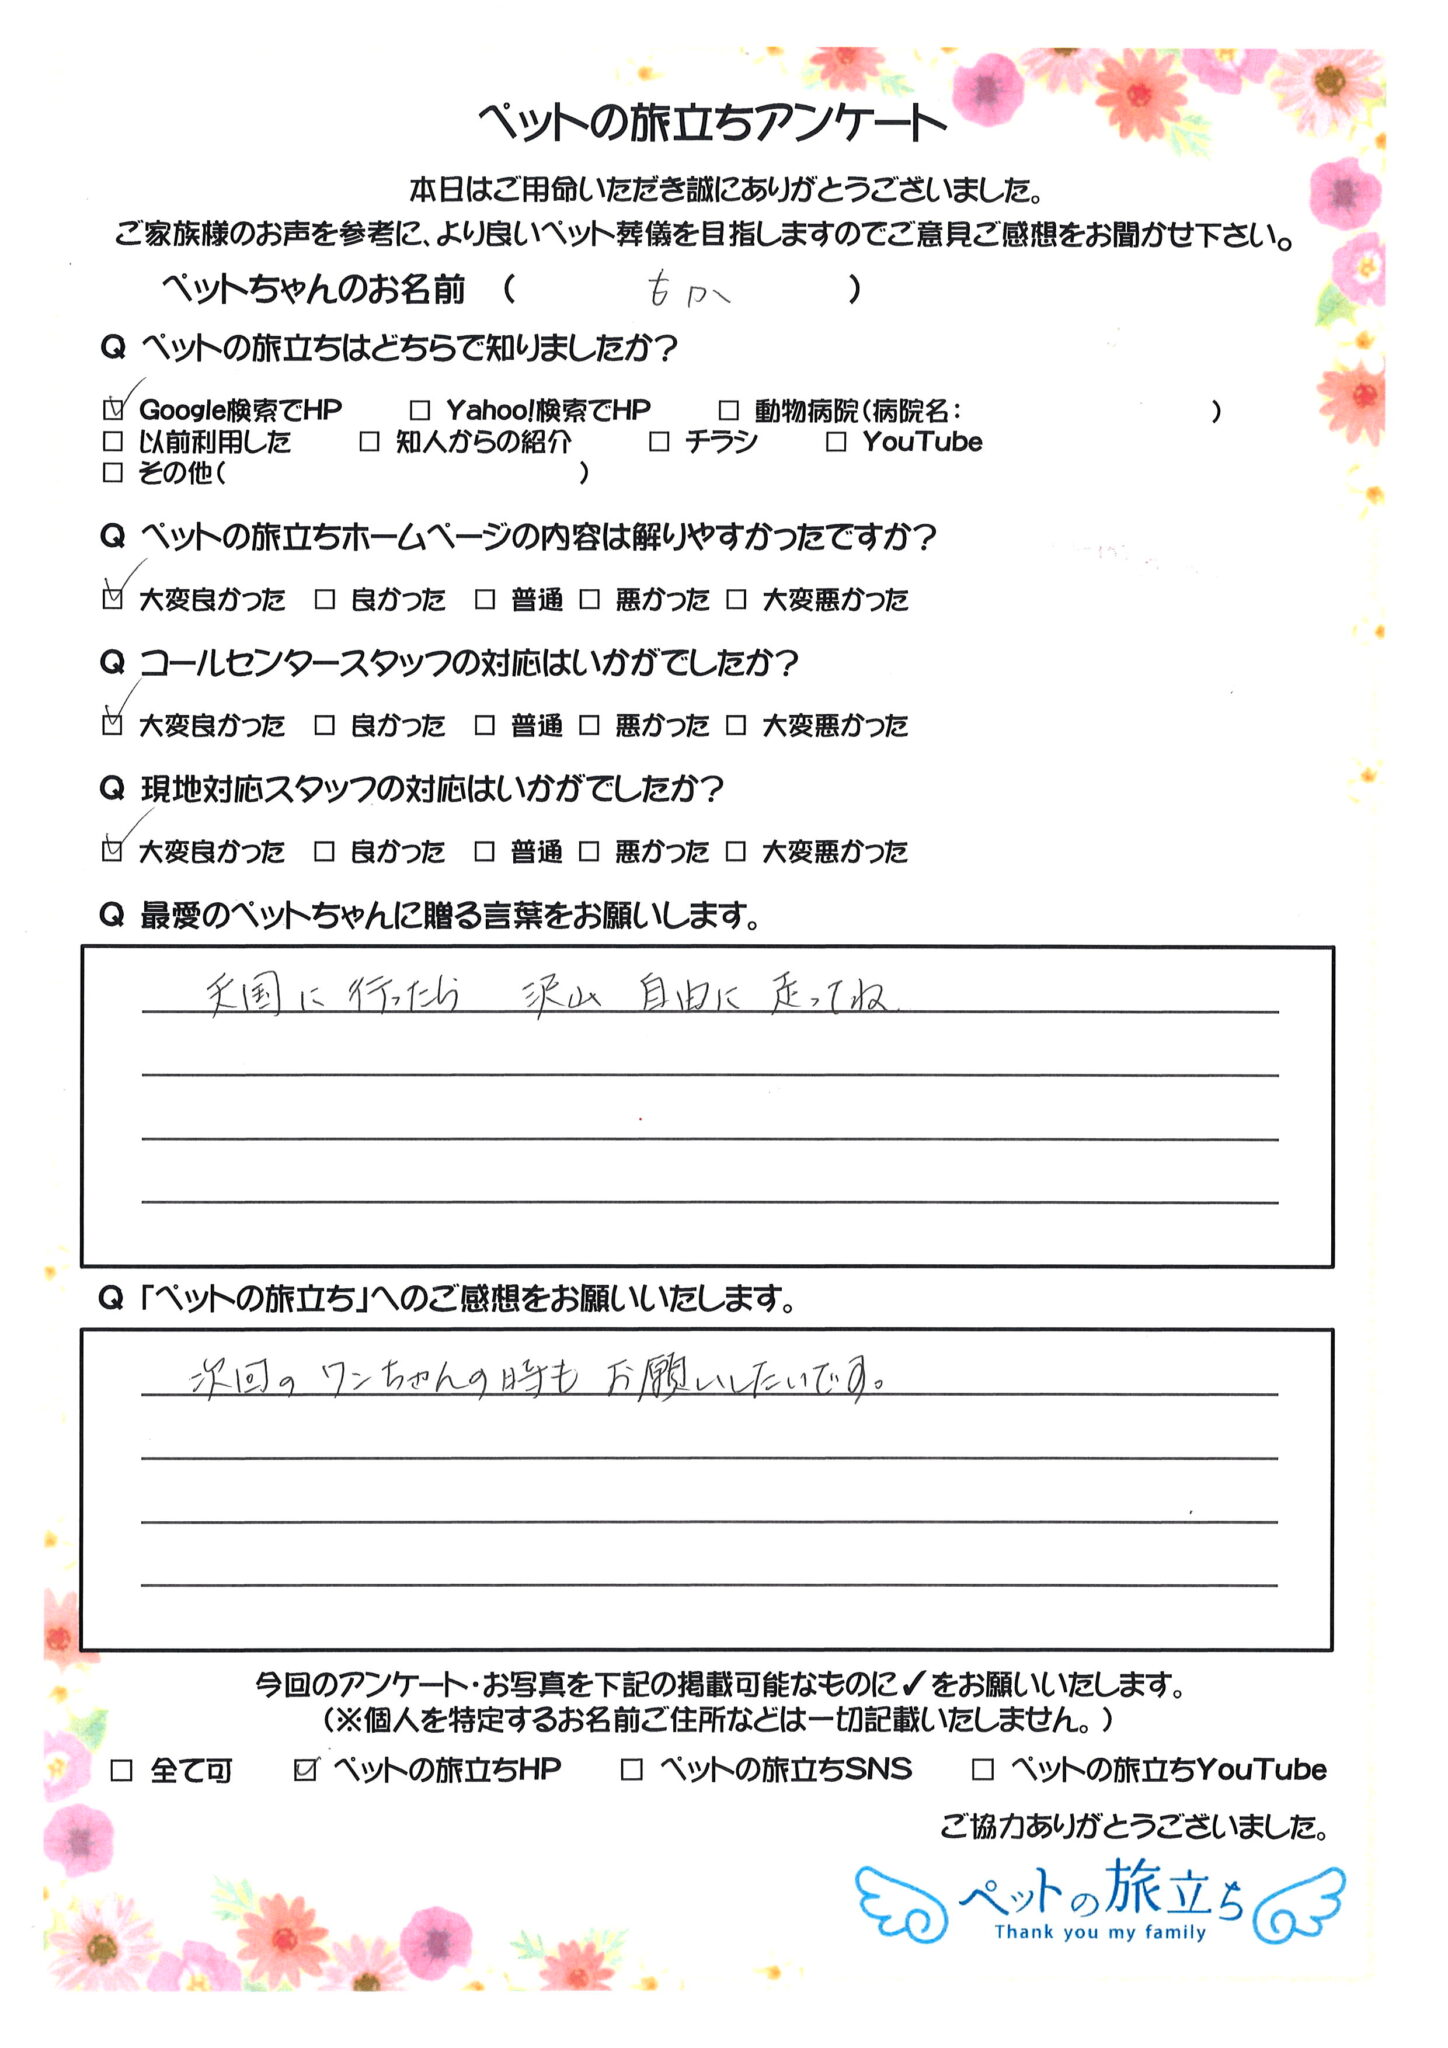 ペットの旅立ちアンケート
本日はご用命いただき誠にありがとうございました。
ご家族様のお声を参考に、より良いペット葬儀を目指しますのでご意見ご感想をお聞かせ下さい。
ペットちゃんのお名前 ( もか )
Q ペットの旅立ちはどちらで知りましたか?
☑ Google検索でHP □ Yahoo!検索でHP □ 動物病院(病院名: )
□ 以前利用した □ 知人からの紹介 □ チラシ □ YouTube
□ その他( )
Q ペットの旅立ちホームページの内容は解りやすかったですか?
☑ 大変良かった □ 良かった □ 普通 □ 悪かった □ 大変悪かった
Q コールセンタースタッフの対応はいかがでしたか?
☑ 大変良かった □ 良かった □ 普通 □ 悪かった □ 大変悪かった
Q 現地対応スタッフの対応はいかがでしたか?
☑ 大変良かった □ 良かった □ 普通 □ 悪かった □ 大変悪かった
Q 最愛のペットちゃんに贈る言葉をお願いします。
天国に行ったら 沢山 自由に 走ってね
Q 「ペットの旅立ち」へのご感想をお願いいたします。
次回のワンちゃんの時もお願いしたいです。
今回のアンケート・お写真を下記の掲載可能なものに✓をお願いいたします。
(※個人を特定するお名前ご住所などは一切記載いたしません。)
□ 全て可 ☑ ペットの旅立ちHP □ ペットの旅立ちSNS □ ペットの旅立ちYouTube
ご協力ありがとうございました。
ペットの旅立ち
Thank you my family